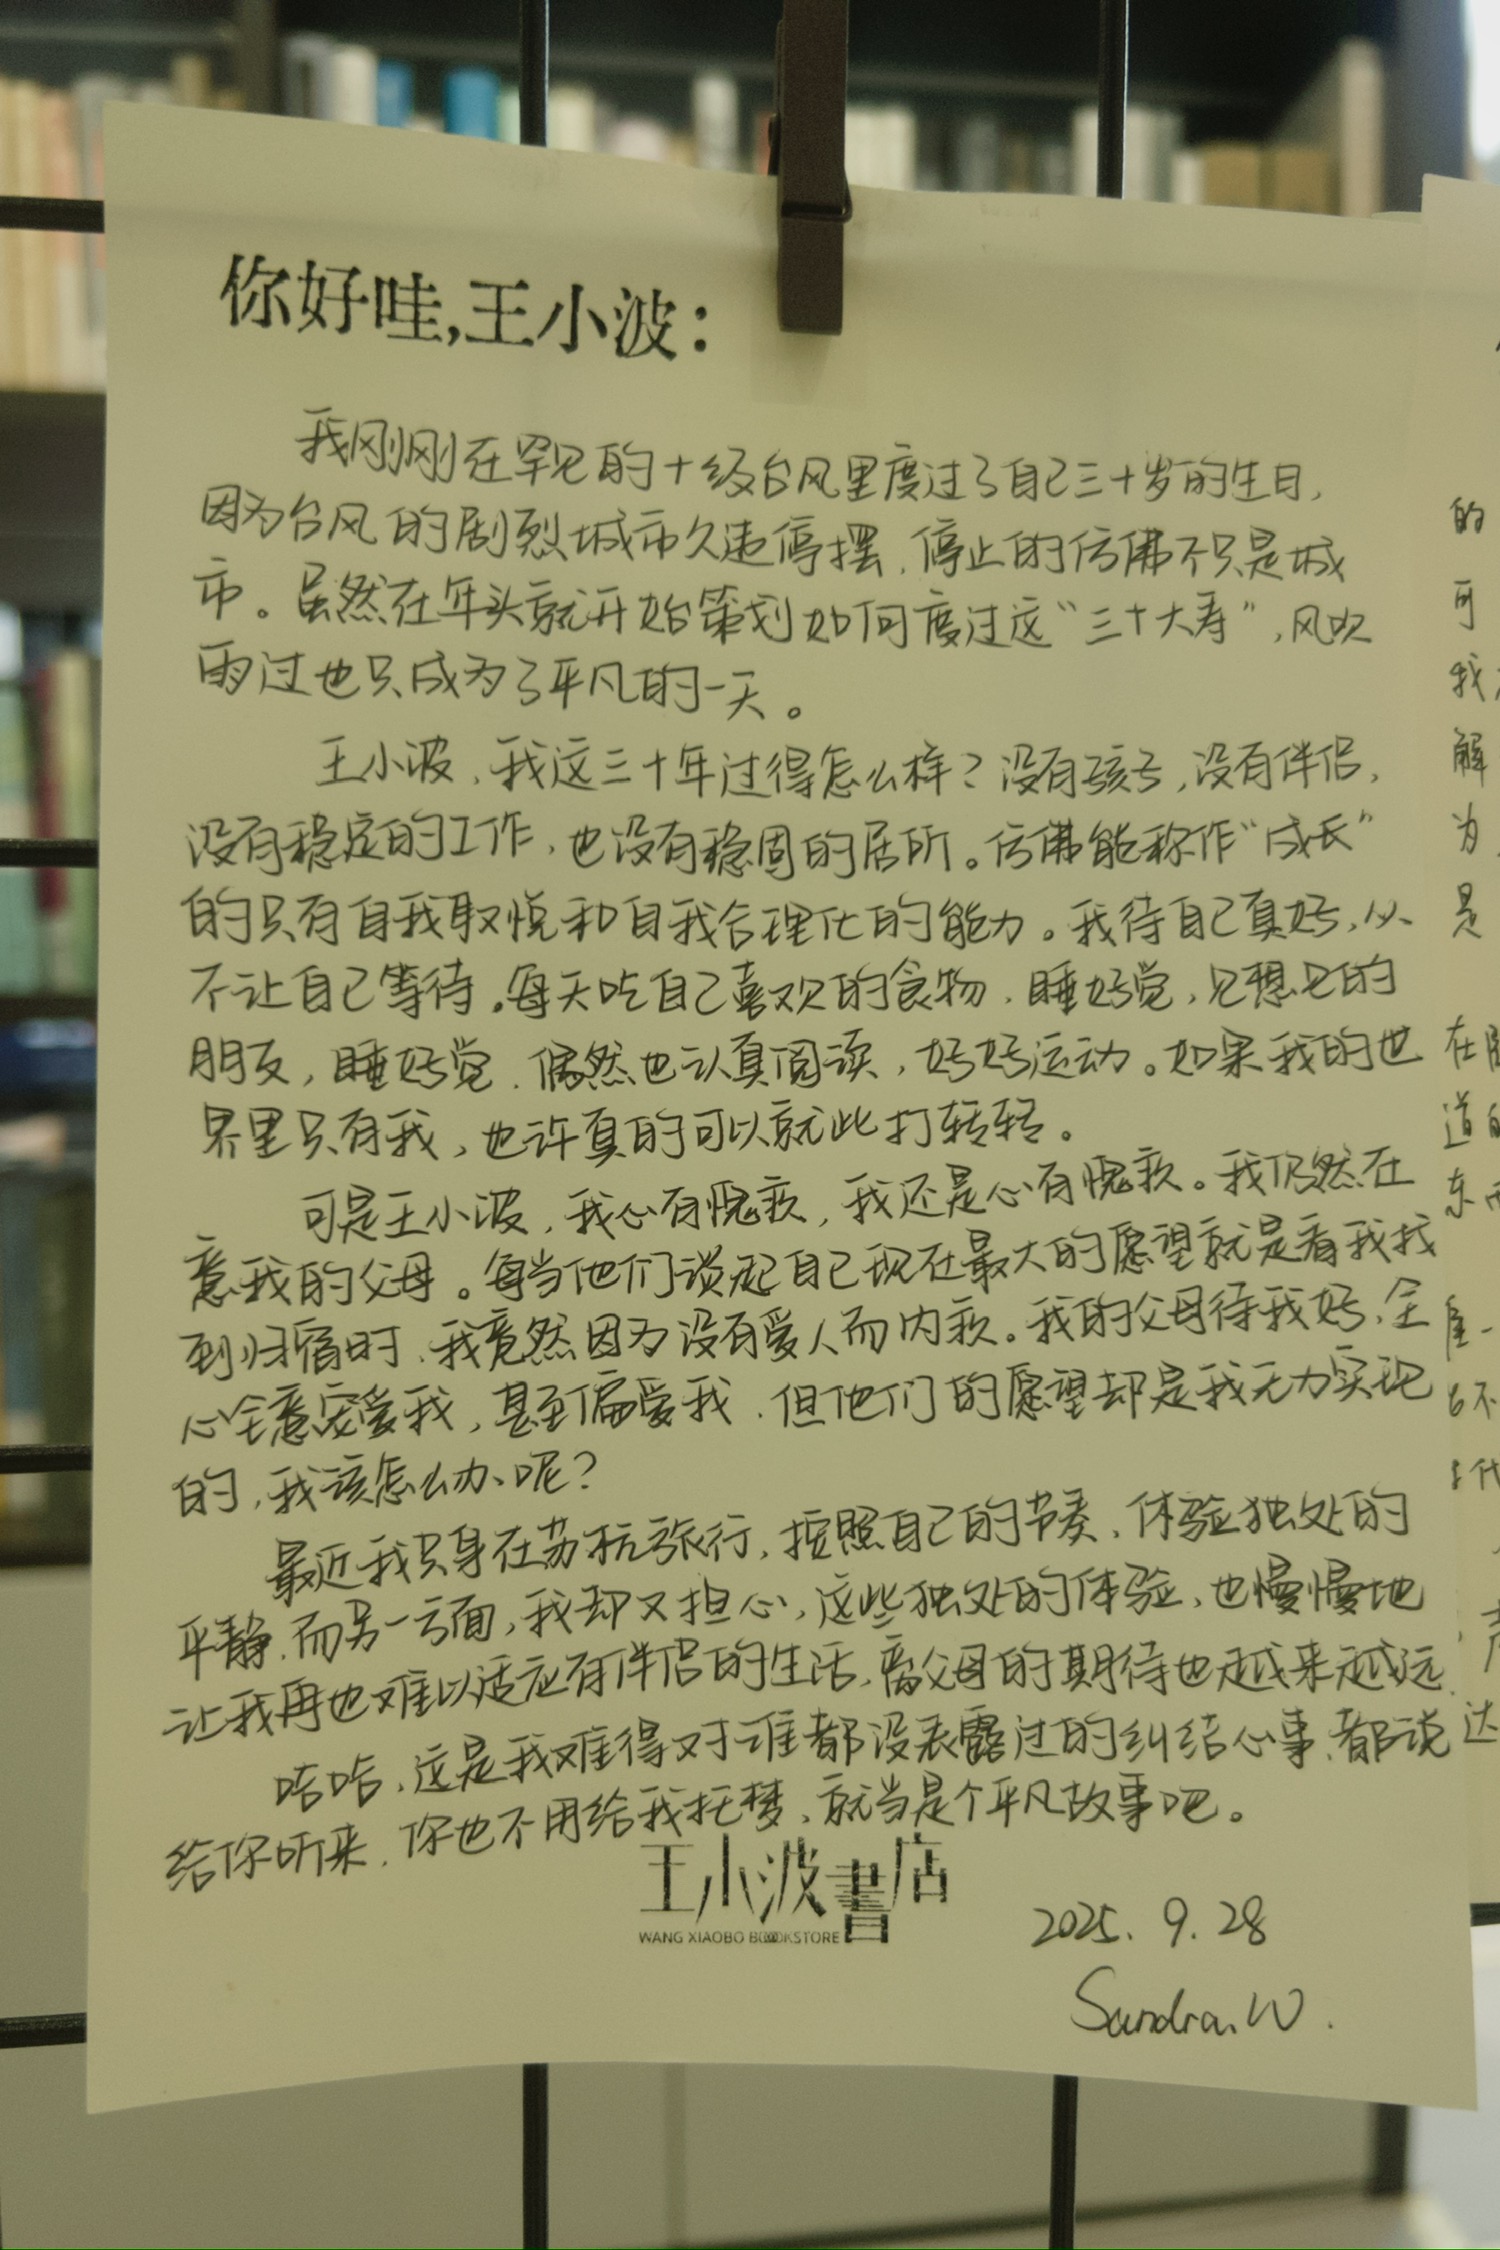 你好哇,王小波：
我刚刚在罕见的十级台风里度过了自己三十岁的生日，
因为台风的剧烈城市久违停摆，停止的仿佛不只是城
市。虽然在年头就开始策划如何度过这“三十大寿”，风吹
雨过也只成为了平凡的一天。
王小波，我这三十年过得怎么样？没有孩子，没有伴侣，
没有稳定的工作，也没有稳固的居所。仿佛能称作“成长”
的只有自我取悦和自我合理化的能力。我待自己真好，从
不让自己等待。每天吃自己喜欢的食物，睡好觉，见想见的
朋友，睡好觉，偶然也认真阅读，好好运动。如果我的世
界里只有我，也许真的可以就此打转转。
可是王小波，我心有愧疚，我还是心有愧疚。我仍然在
意我的父母。每当他们谈起自己现在最大的愿望就是看我找
到归宿时，我竟然因为没有爱人而内疚。我的父母待我好，全
心全意宠爱我，甚至偏爱我，但他们的愿望却是我无力实现
的，我该怎么办呢？
最近我只身在苏杭旅行，按照自己的节奏，体验独处的
平静，而另一方面，我却又担心，这些独处的体验，也慢慢地
让我再也难以适应有伴侣的生活，离父母的期待也越来越远。
哈哈，这是我难得对谁都没表露过的纠结心事，都说
给你听来，你也不用给我托梦，就当是个平凡故事吧。
王小波書店
WANG XIAOBO BOOKSTORE
2025. 9. 28
Sandra.W.
的
可
我
解
为
是
在
道的
东而